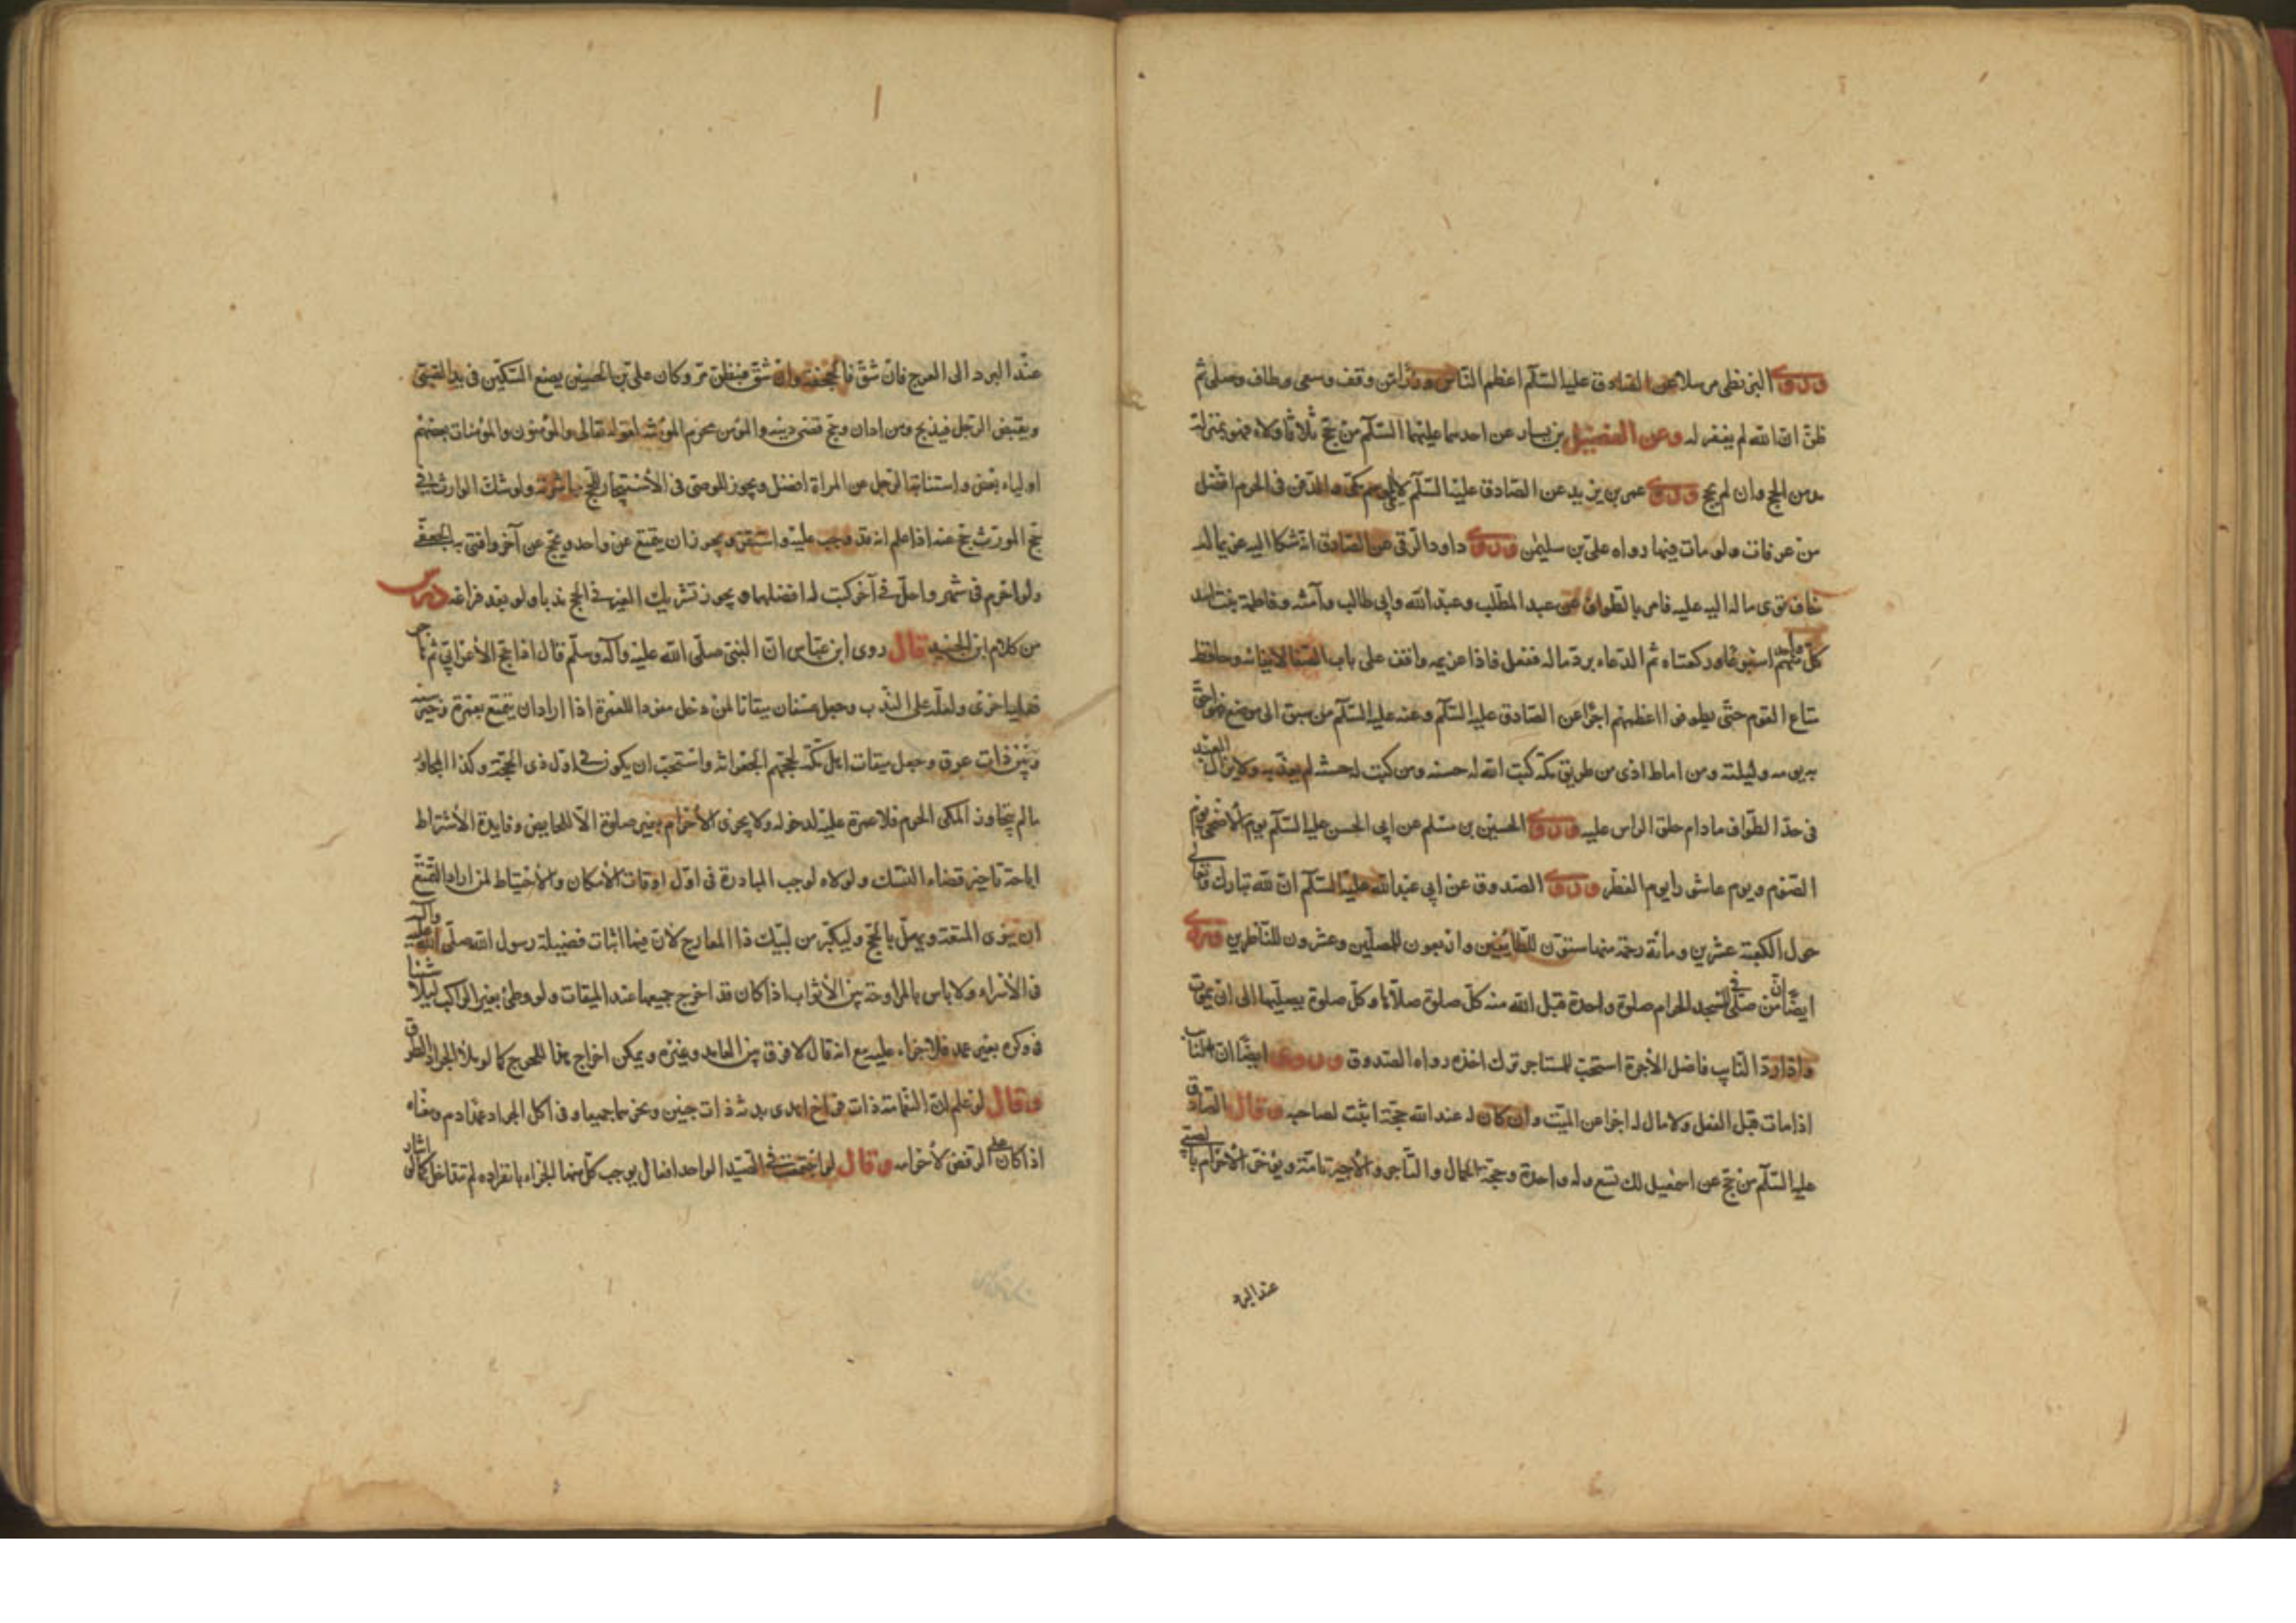 وروى البزنطي مرسلا عن الصادق عليه السلام اعظم الناس وزرا من وقف وسعى وطاف وصلى ثم
ظن ان الله لم يغفر له وعن الفضيل بن يسار عن احدهما عليهما السلام من حج ثلاثا ولاء فهو بمنزلة
مدمن الحج وان لم يحج وروى عمر بن يزيد عن الصادق عليه السلام والدفن في الحرم افضل
من عرفات ولو مات فيها رواه علي بن سليمن وروى داود الرقي عن الصادق انه شكا اليه غريما له
خاف توى ماله اليه عليه فامر بالطواف عن عبد المطلب وعبد الله وابي طالب وآمنة وفاطمة بنت اسد
كل واحد منهم اسبوعا وركعتاه ثم الدعاء برد ماله ففعل فاذا غريمه واقف على باب الصفا لايفائه وحافظ
متاع القوم حتى يطوفوا اعظمهم اجرا عن الصادق عليه السلام وعنه عليه السلام من سبق الى موضع فهو احق
به يومه وليلته ومن اماط اذى من طريق مكة كتب الله له حسنة ومن كتب له حسنة لم يعذبه ولا يزال العبد
في حد الطواف مادام حلق الراس عليه وروى الحسين بن مسلم عن ابي الحسن عليه السلام يوم الاضحى يوم
الصوم ويوم عاشورا يوم الفطر وروى الصدوق عن ابي عبد الله عليه السلام ان لله تبارك وتعالى
حول الكعبة عشرين ومائة رحمة منها ستون للطايفين واربعون للمصلين وعشرون للناظرين وروى
ايضا ان من صلى في المسجد الحرام صلوة واحدة قبل الله منه كل صلوة صلاها وكل صلوة يصليها الى ان يموت
واذا رد النايب فاضل الاجرة استحب للمستاجر ترك اخذه رواه الصدوق وروى ايضا ان النايب
اذا مات قبل الفعل ولا مال له اجزا عن الميت وان كان له عند الله حجة اثبت لصاحبه وقال الصادق
عليه السلام من حج عن اسمعيل لك تسع وله واحدة وحجة الجمال والتاجر والاجير تامة ويؤخر الاحرام بالصبي
عند البرد
عند البرد الى العرج فان شق فالجحفة وان شق فبطن مر وكان علي بن الحسين يضع السكين في يد الصبي
ويقبض الرجل فيذبح ومن ادان وحج قضي دينه والمؤمن محرم المؤمنة لقوله تعالى والمؤمنون والمؤمنات بعضهم
اولياء بعض واستنابة الرجل عن المراة افضل ويجوز للوصي في الاستيجار للحج مباشرته ولو شك الوارث في
حج المورث حج عنه اذا علم انه قد وجب عليه واستقر ويجوز ان يتمتع عن واحد ويحج عن آخر وافتى به الجعفي
ولو احرم في شهر واحل في آخر كتب له افضلهما ويجوز تشريك الغير في الحج ندبا ولو بعد فراغه درس
من كلام ابن الجنيد قال روى ابن عباس ان النبي صلى الله عليه وآله وسلم قال اذا حج الاعرابي ثم هاجر
فعليه اخرى ولعله على الندب وجعل عسفان ميقاتا لمن دخل مفردا للعمرة اذا اراد ان يتمتع بعمرة وخير بينه
وبين ذات عرق وجعل ميقات اهل مكة لحجهم الجعرانة واستحب ان يكون في اول ذي الحجة وكذا المجاور
ما لم يتجاوز المكي الحرم فلا عمرة عليه لدخوله ولا يجزى الاحرام بغير صلوة الا للحايض وفايدة الاشتراط
اباحة تاخير قضاء النسك ولولاه لوجب المبادرة في اول اوقات الامكان والاحتياط لمن اراد التمتع
ان ينوى المتعة ويهل بالحج وليكثر من لبيك ذا المعارج لان فيها اثبات فضيلة رسول الله صلى الله عليه وآله
في الاسراء ولا باس بالمراوحة بين الاثواب اذا كان قد اخرج جميعها عند الميقات ولو وطئ بعير الراكب ليلا شيئا
في وكره بغير عمد فلا جزاء عليه مع انه قال لا فرق بين العامد وغيره ويمكن اخراج هذا للحرج كما لو ملأ الجراد الطرق
وقال لو علم ان النعامة ذات فراخ اهدى بدنة ذات جنين ونحرهما جميعا وفي اكل الجراد عمدا دم ومعناه
اذا كان على الرفض لاحرامه وقال لو اجتمعت في الصيد الواحد افعال يوجب كل منها الجزاء بانفراده لم تتداخل كما لو اشار